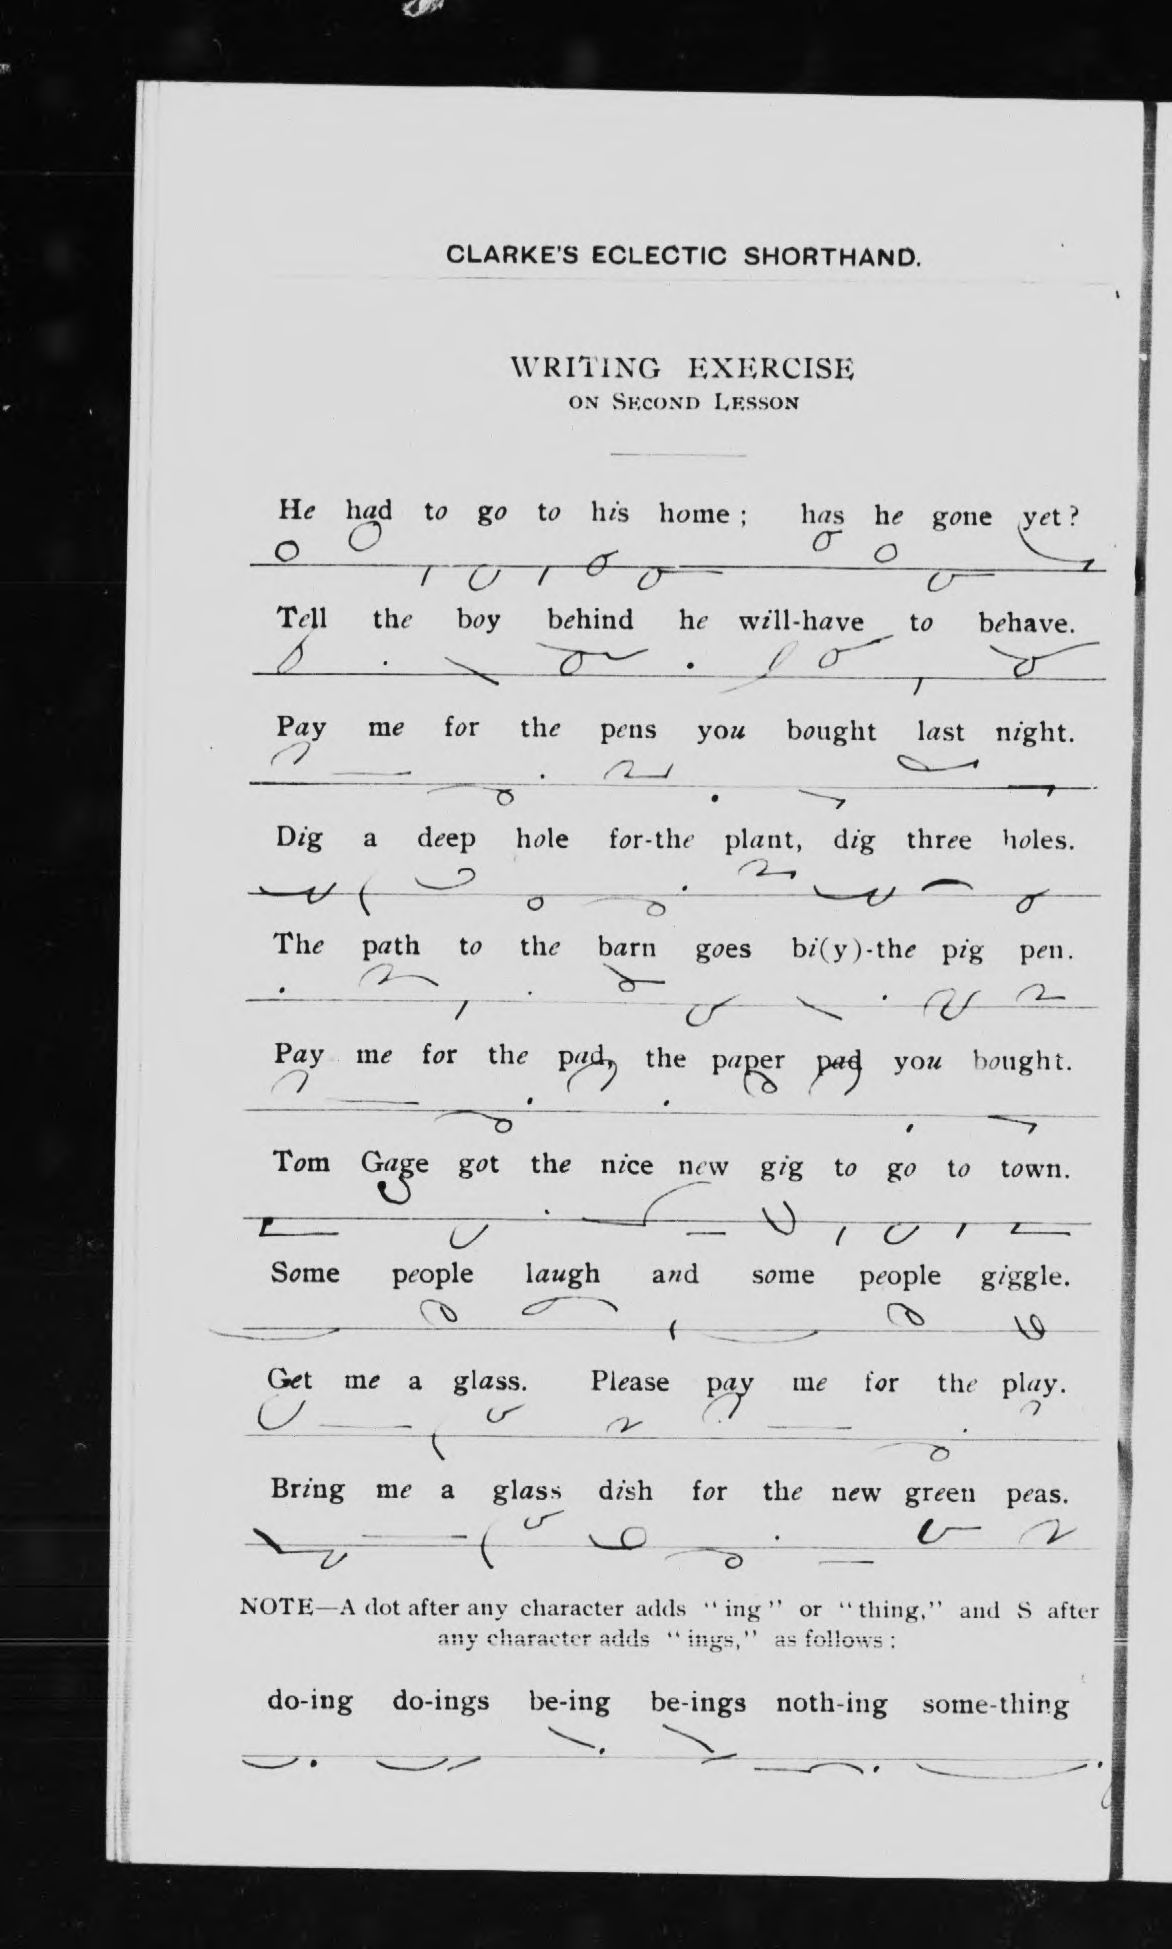 CLARKE'S ECLECTIC SHORTHAND.
WRITING EXERCISE
ON SECOND LESSON
He had to go to his home; has he gone yet?
Tell the boy behind he will-have to behave.
Pay me for the pens you bought last night.
Dig a deep hole for-the plant, dig three holes.
The path to the barn goes bi(y)-the pig pen.
Pay me for the pad, the paper pad you bought.
Tom Gage got the nice new gig to go to town.
Some people laugh and some people giggle.
Get me a glass. Please pay me for the play.
Bring me a glass dish for the new green peas.
NOTE—A dot after any character adds "ing" or "thing," and S after
any character adds "ings," as follows:
do-ing do-ings be-ing be-ings noth-ing some-thing